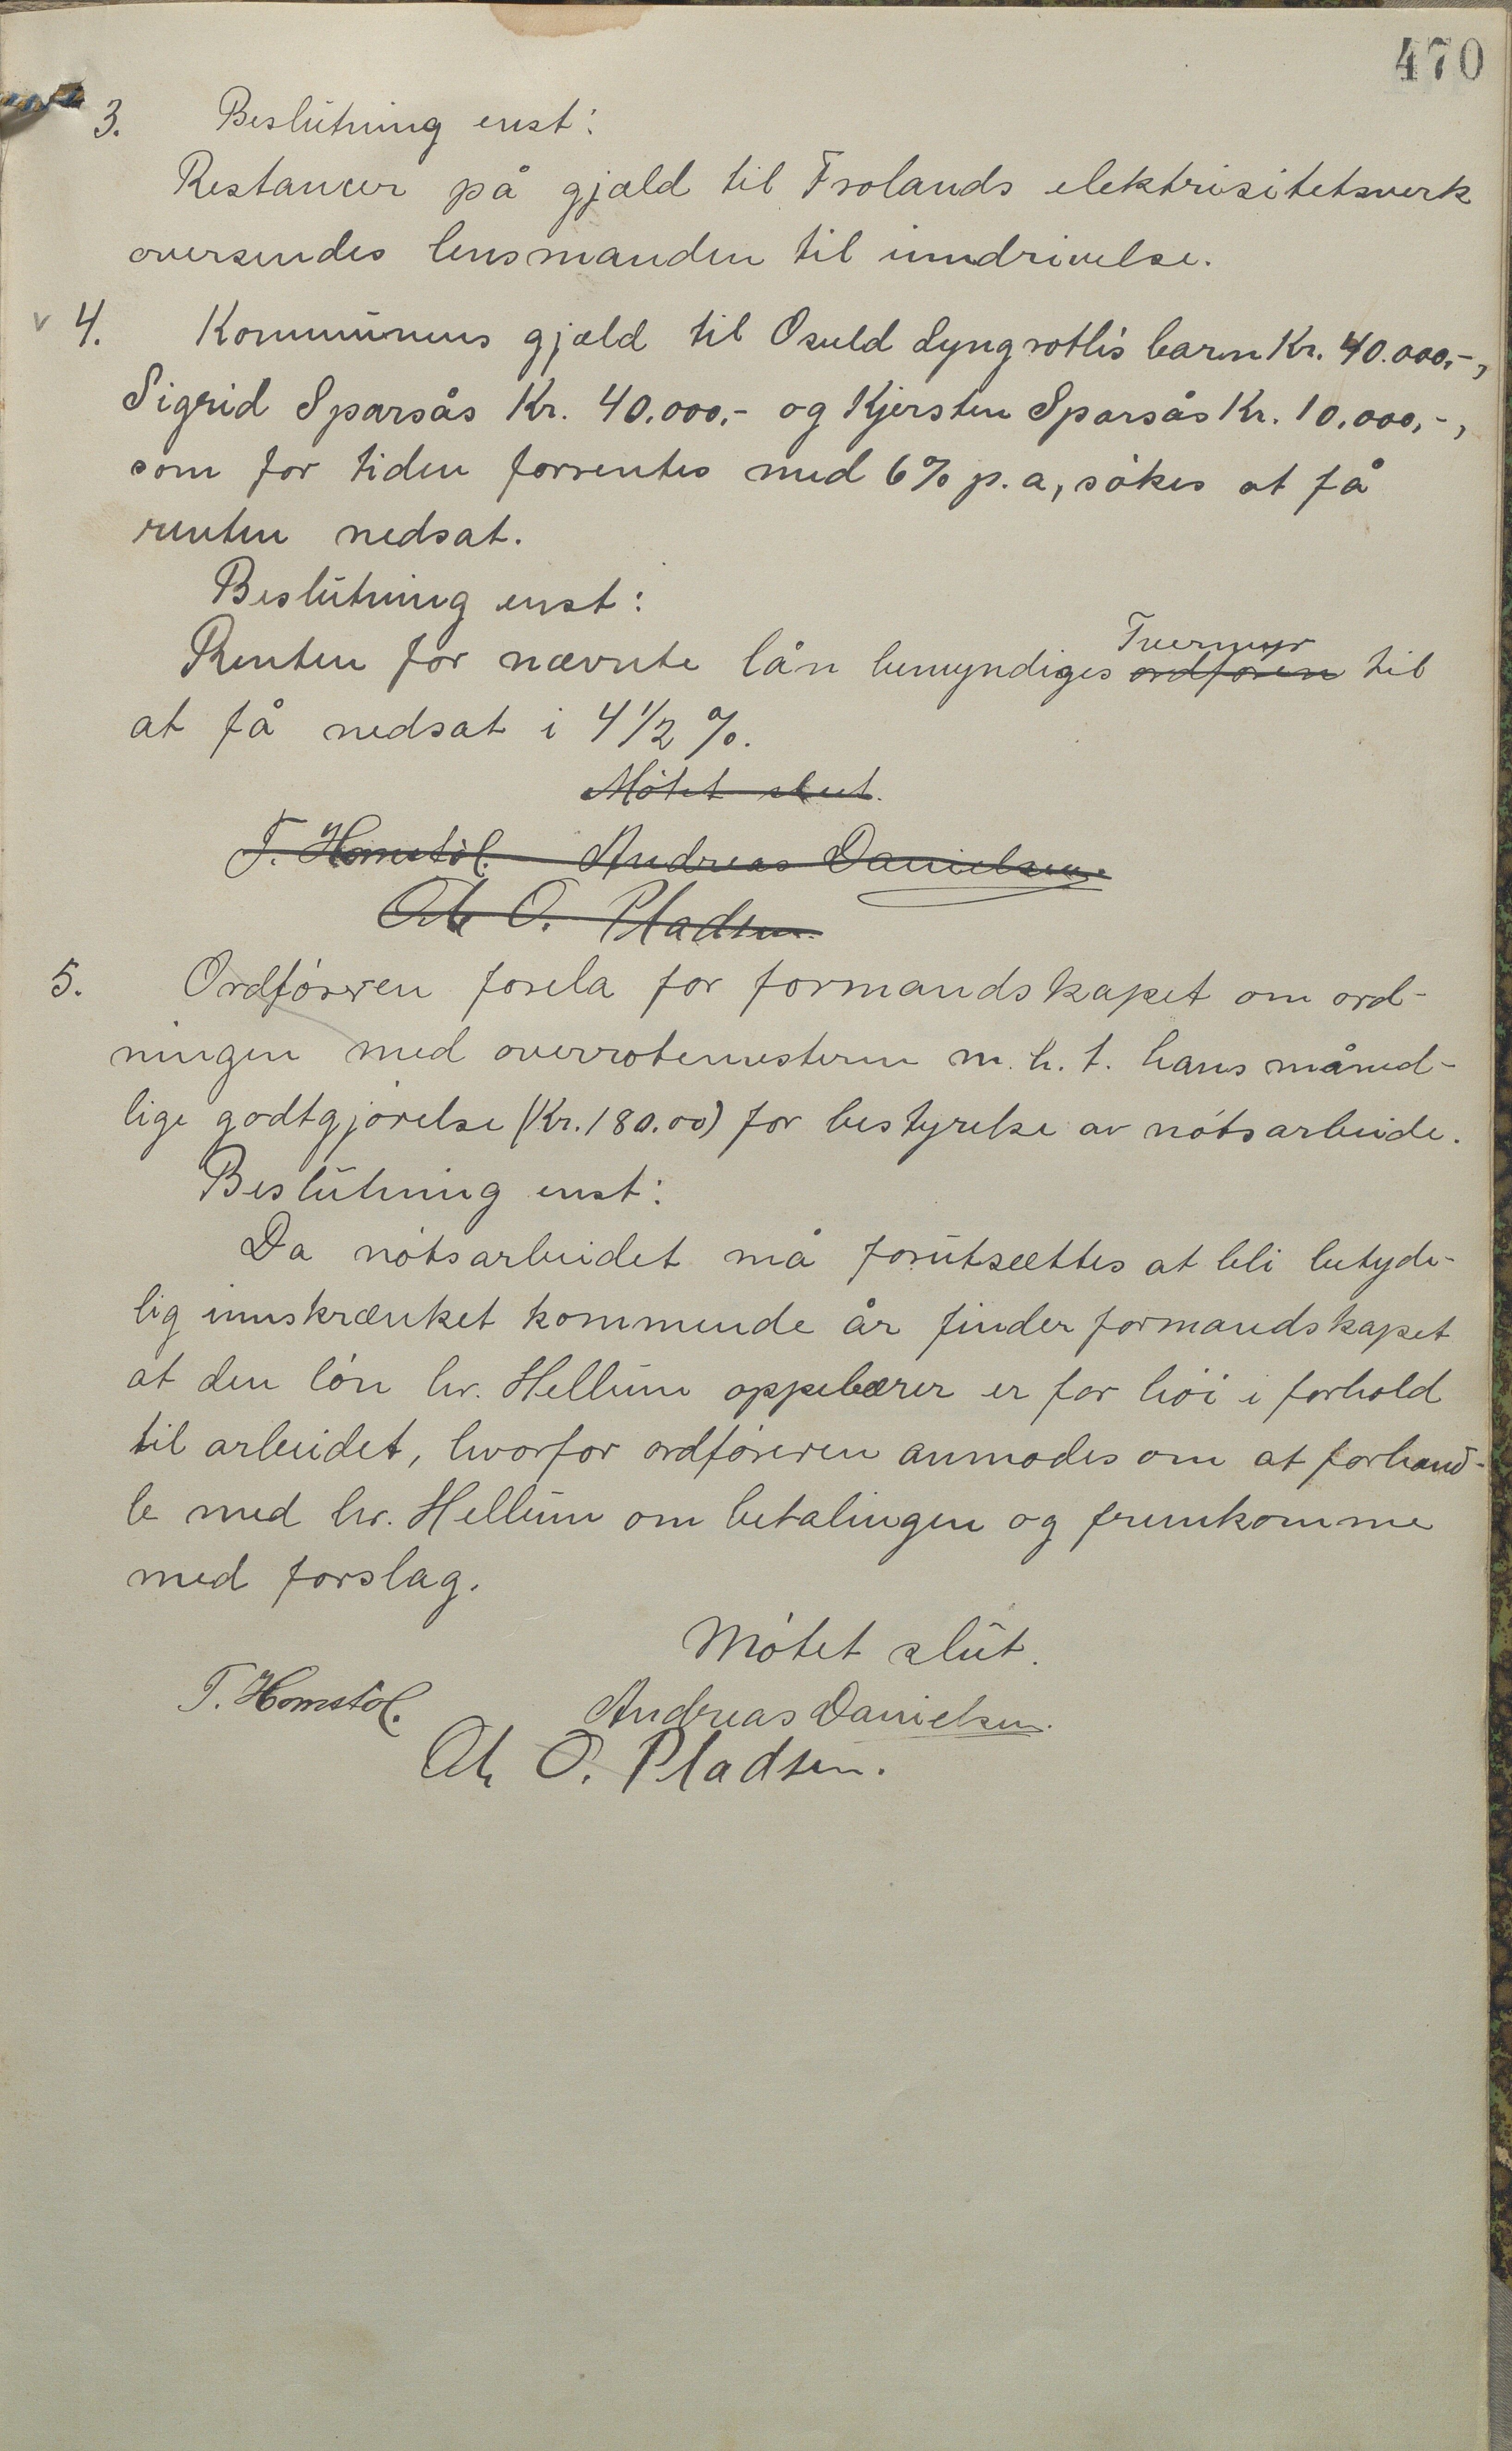 470
3. Beslutning enst:
Restancer på gjæld til Frolands elektrisitetsverk
oversendes lensmanden til inndrivelse.
v 4. Kommunens gjæld til Osuld Lyngrotlis barn Kr. 40.000,-,
Sigrid Sparsås Kr. 40.000,- og Kjersten Sparsås Kr. 10.000,-,
som for tiden forrentes med 6% p.a, søkes at få
renten nedsat.
Beslutning enst:
Tvermyr
Renten for nævnte lån bemyndiges ordføren til
at få nedsat i 4 1/2 %.
Møtet slut.
T. Homstøl. Andreas Danielsen.
O. Pladsen.
5. Ordføreren forela for formandskapet om ord-
ningen med overrotemesteren m.h.t. hans måned-
lige godtgjørelse (Kr. 180.00) for bestyrelse av nødsarbeide.
Beslutning enst:
Da nødsarbeidet må forutsættes at bli betyde-
lig innskrænket kommende år finder formandskapet
at den løn hr. Hellum oppebærer er for høi i forhold
til arbeidet, hvorfor ordføreren anmodes om at forhand-
le med hr. Hellum om betalingen og fremkomme
med forslag.
Møtet slut.
T. Homstøl. Andreas Danielsen.
O. Pladsen.